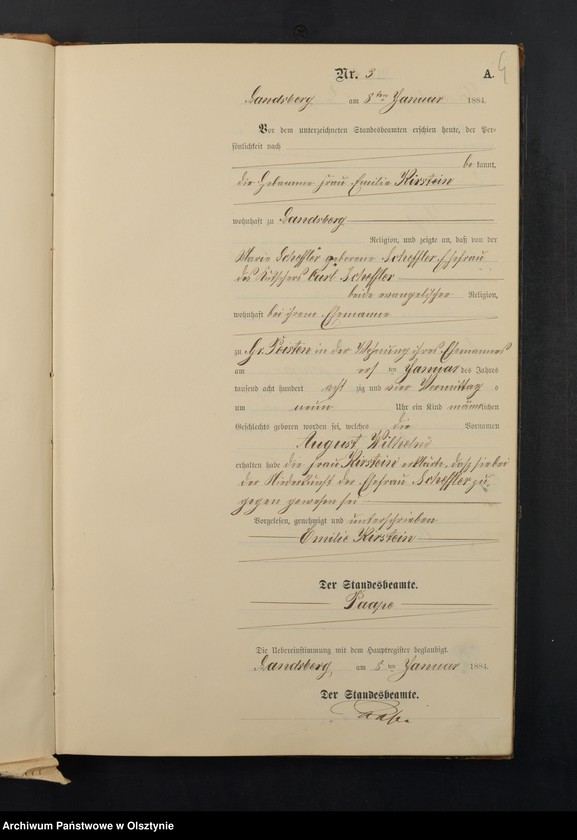 4
Nr. 3 A.
Landsberg am 3ten Januar 1884.
Vor dem unterzeichneten Standesbeamten erschien heute, der Per-
sönlichkeit nach
be kannt,
die Hebamme Frau Emilie Kirstein
wohnhaft zu Landsberg
Religion, und zeigte an, daß von der
Marie Scheffler geborene Scheffler Ehefrau
des Kutschers Carl Scheffler
beide evangelischer Religion,
wohnhaft bei ihrem Ehemanne
zu Gr. Peisten in der Wohnung ihres Ehemannes
am ten Januar des Jahres
tausend acht hundert acht zig und vier Vormittag s
um neun Uhr ein Kind männlichen
Geschlechts geboren worden sei, welches die Vornamen
August Wilhelm
erhalten habe die Frau Kirstein erklärte, daß sie bei
der Niederkunft der Ehefrau Scheffler zu-
gegen gewesen sei
Vorgelesen, genehmigt und unterschrieben
Emilie Kirstein
Der Standesbeamte.
Paape
Die Uebereinstimmung mit dem Hauptregister beglaubigt.
Landsberg, am 3 ten Januar 1884.
Der Standesbeamte.
Paape
Archiwum Państwowe w Olsztynie